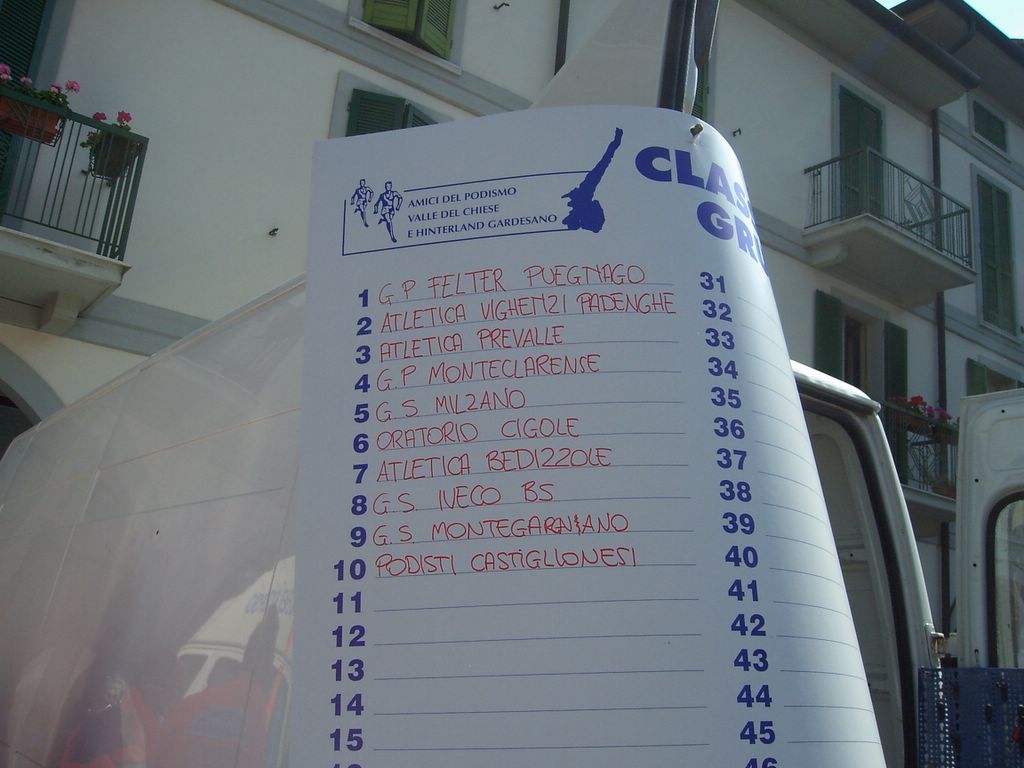 AMICI DEL PODISMO
VALLE DEL CHIESE
E HINTERLAND GARDESANO
CLAS
GR
1 G.P FELTER PUEGNAGO
2 ATLETICA VIGHENZI PADENGHE
3 ATLETICA PREVALLE
4 G.P MONTECLARENSE
5 G.S MILZANO
6 ORATORIO CIGOLE
7 ATLETICA BEDIZZOLE
8 G.S. IVECO BS
9 G.S. MONTEGARGNANO
10 PODISTI CASTIGLIONESI
11
12
13
14
15
31
32
33
34
35
36
37
38
39
40
41
42
43
44
45
46